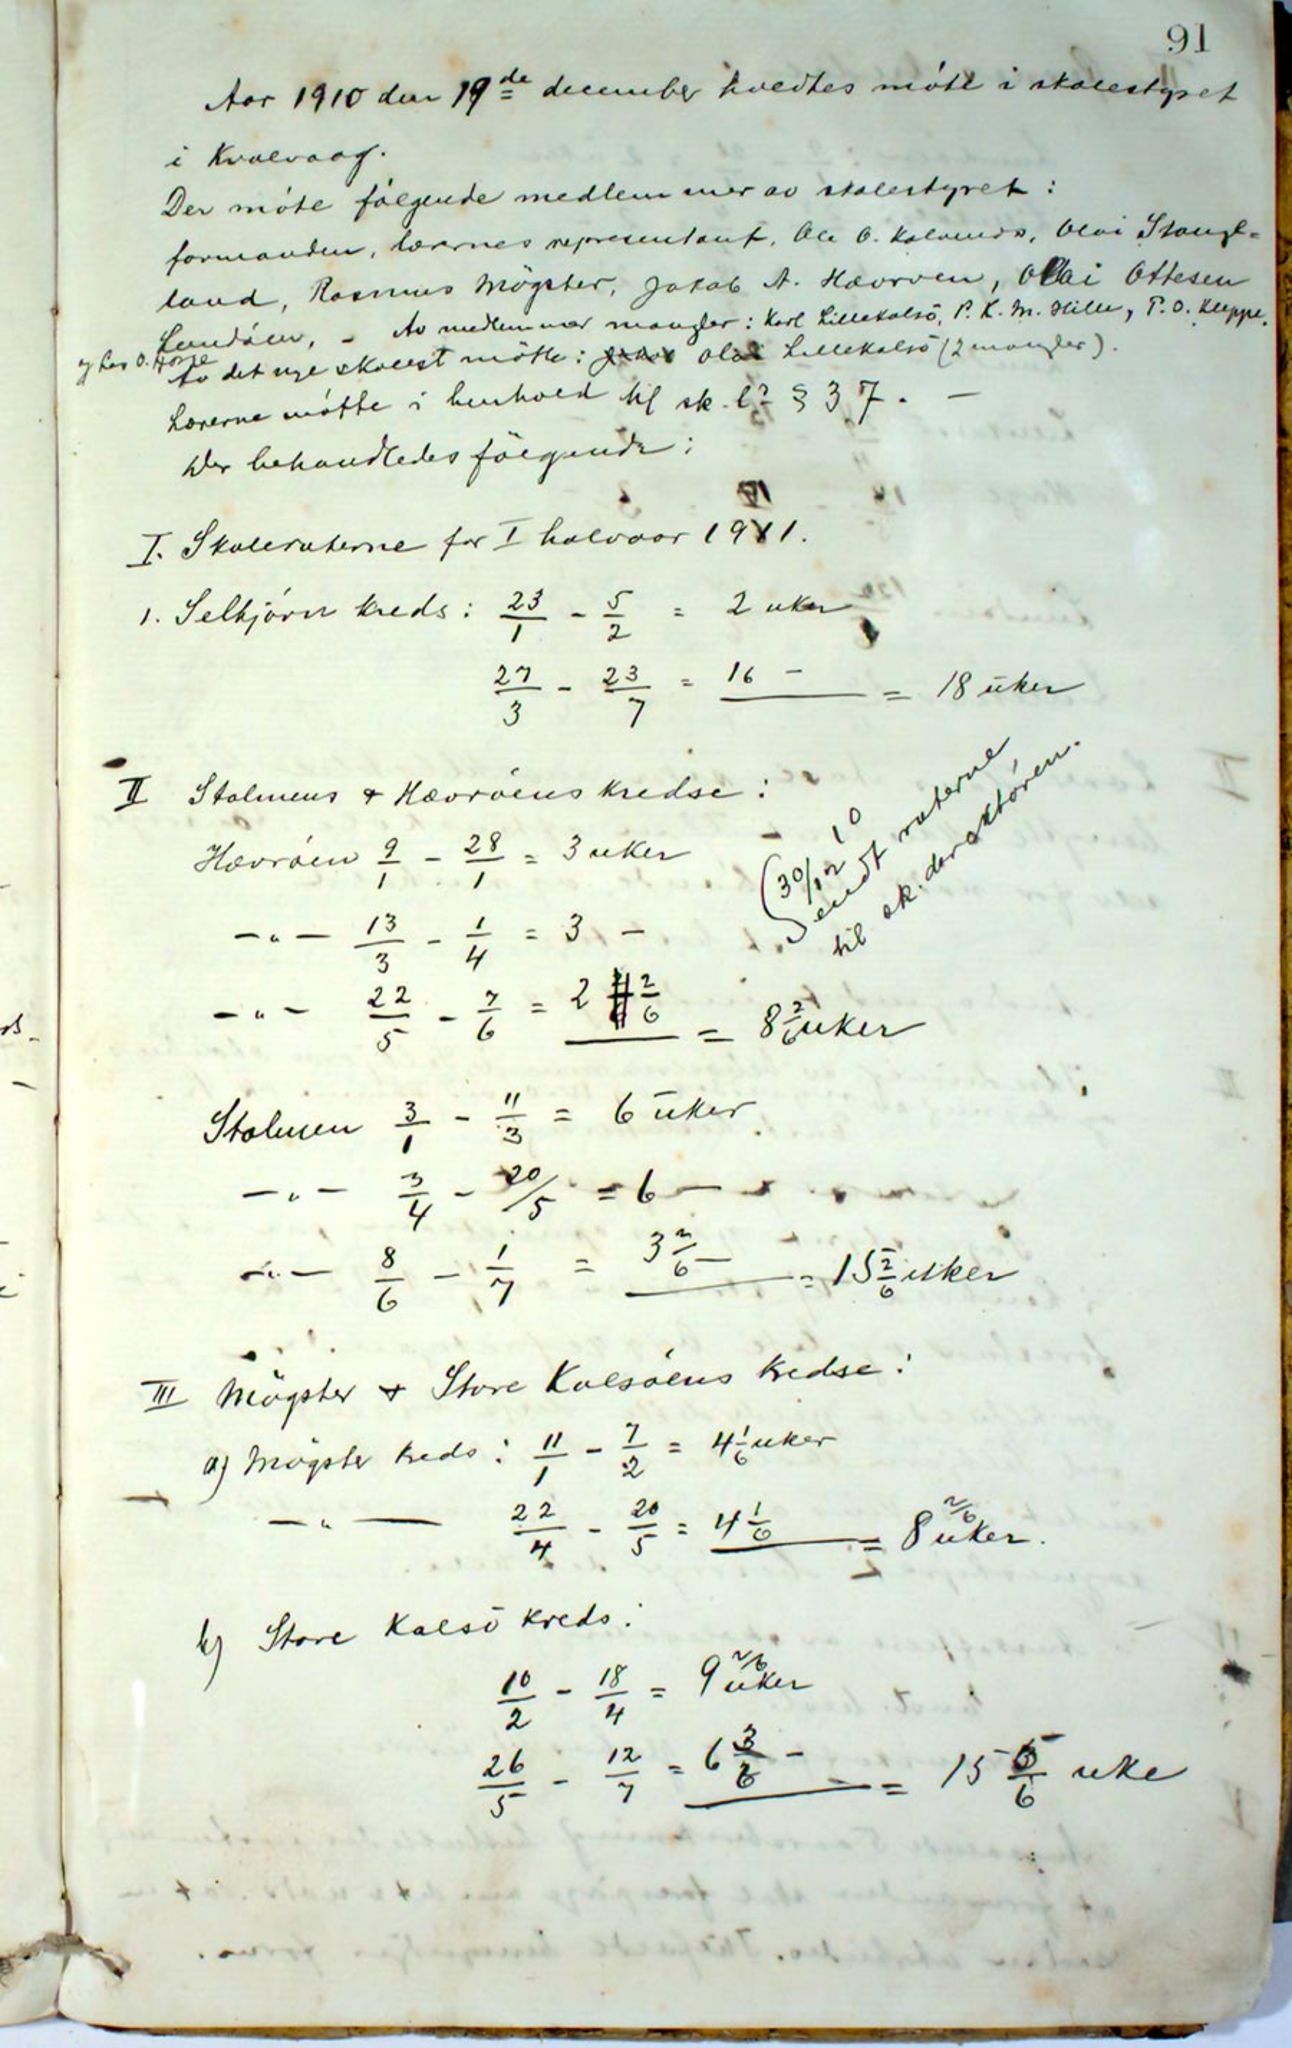 91
Aar 1910 den 19de december holdtes møte i skolestyret
i Kvalvaag.
Der møte følgende medlemmer av skolestyret:
formanden, lærernes representant, Ole O. Kalvenes, Olai Stangl-
land, Rasmus Møgster, Jakob A. Hævrøen, Olai Ottesen
Lundøen, - Av medlemmer mangler: Karl Lillekalsø, P. K. M. Hille, T. O. Kleppe,
og Lars O. Horge
Av det nye skolest møtte: Olai Lillekalsø (2 mangler).
Lærerne møtte i henhold til sk. l. § 37. -
Der behandledes følgende:
I. Skoleruterne for I halvaar 1911.
1. Selbjørn kreds: 23/1 - 5/2 = 2 uker
27/3 - 23/7 = 16 - = 18 uker
II Stolmens & Hævrøens kredse:
Hævrøen 9/1 - 28/1 = 3 uker
(30/12 10
Sendt ruterne
til sk. derektøren.
-"- 13/3 - 1/4 = 3 -
-"- 22/5 - 7/6 = 2 2/6 = 8 2/6 uker
Stolmen 3/1 - 11/3 = 6 uker
-"- 3/4 - 20/5 = 6 -
-"- 8/6 - 1/7 = 3 2/6 - = 15 2/6 uker
III Møgster & Store Kalsøens kredse:
a) Møgster kreds: 11/1 - 7/2 = 4 1/6 uker
-"- 22/4 - 20/5 = 4 1/6 = 8 2/6 uker.
b) Store Kalsø kreds:
10/2 - 18/4 = 9 2/6 uker
26/5 - 12/7 = 6 3/6 - = 15 5/6 uke